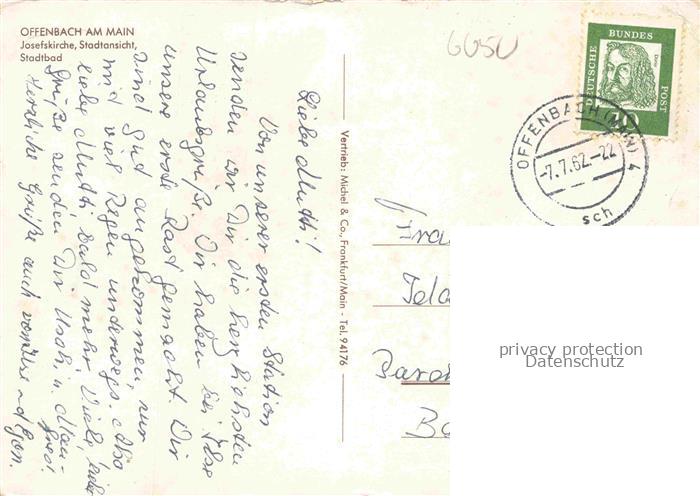 OFFENBACH AM MAIN
Josefskirche, Stadtansicht,
Stadtbad
6050
DEUTSCHE BUNDES POST
Dürer
10
OFFENBACH (MAIN) 4
-7.7.62-22
sch
Vertrieb: Michel & Co., Frankfurt/Main - Tel. 94176
Liebe Mutti!
Von unserer ersten Station
senden wir Dir die herzlichsten
Urlaubsgrüße. Wir haben bei Ilse
unsere erste Rast gemacht. Wir
sind gut angekommen, nur
mit viel Regen unterwegs. Also
liebe Mutti bald mehr. Viele, liebe
Grüße senden Dir Ursch. u. Man-
fred.
Herzliche Grüße auch von Ilse und
privacy protection
Datenschutz